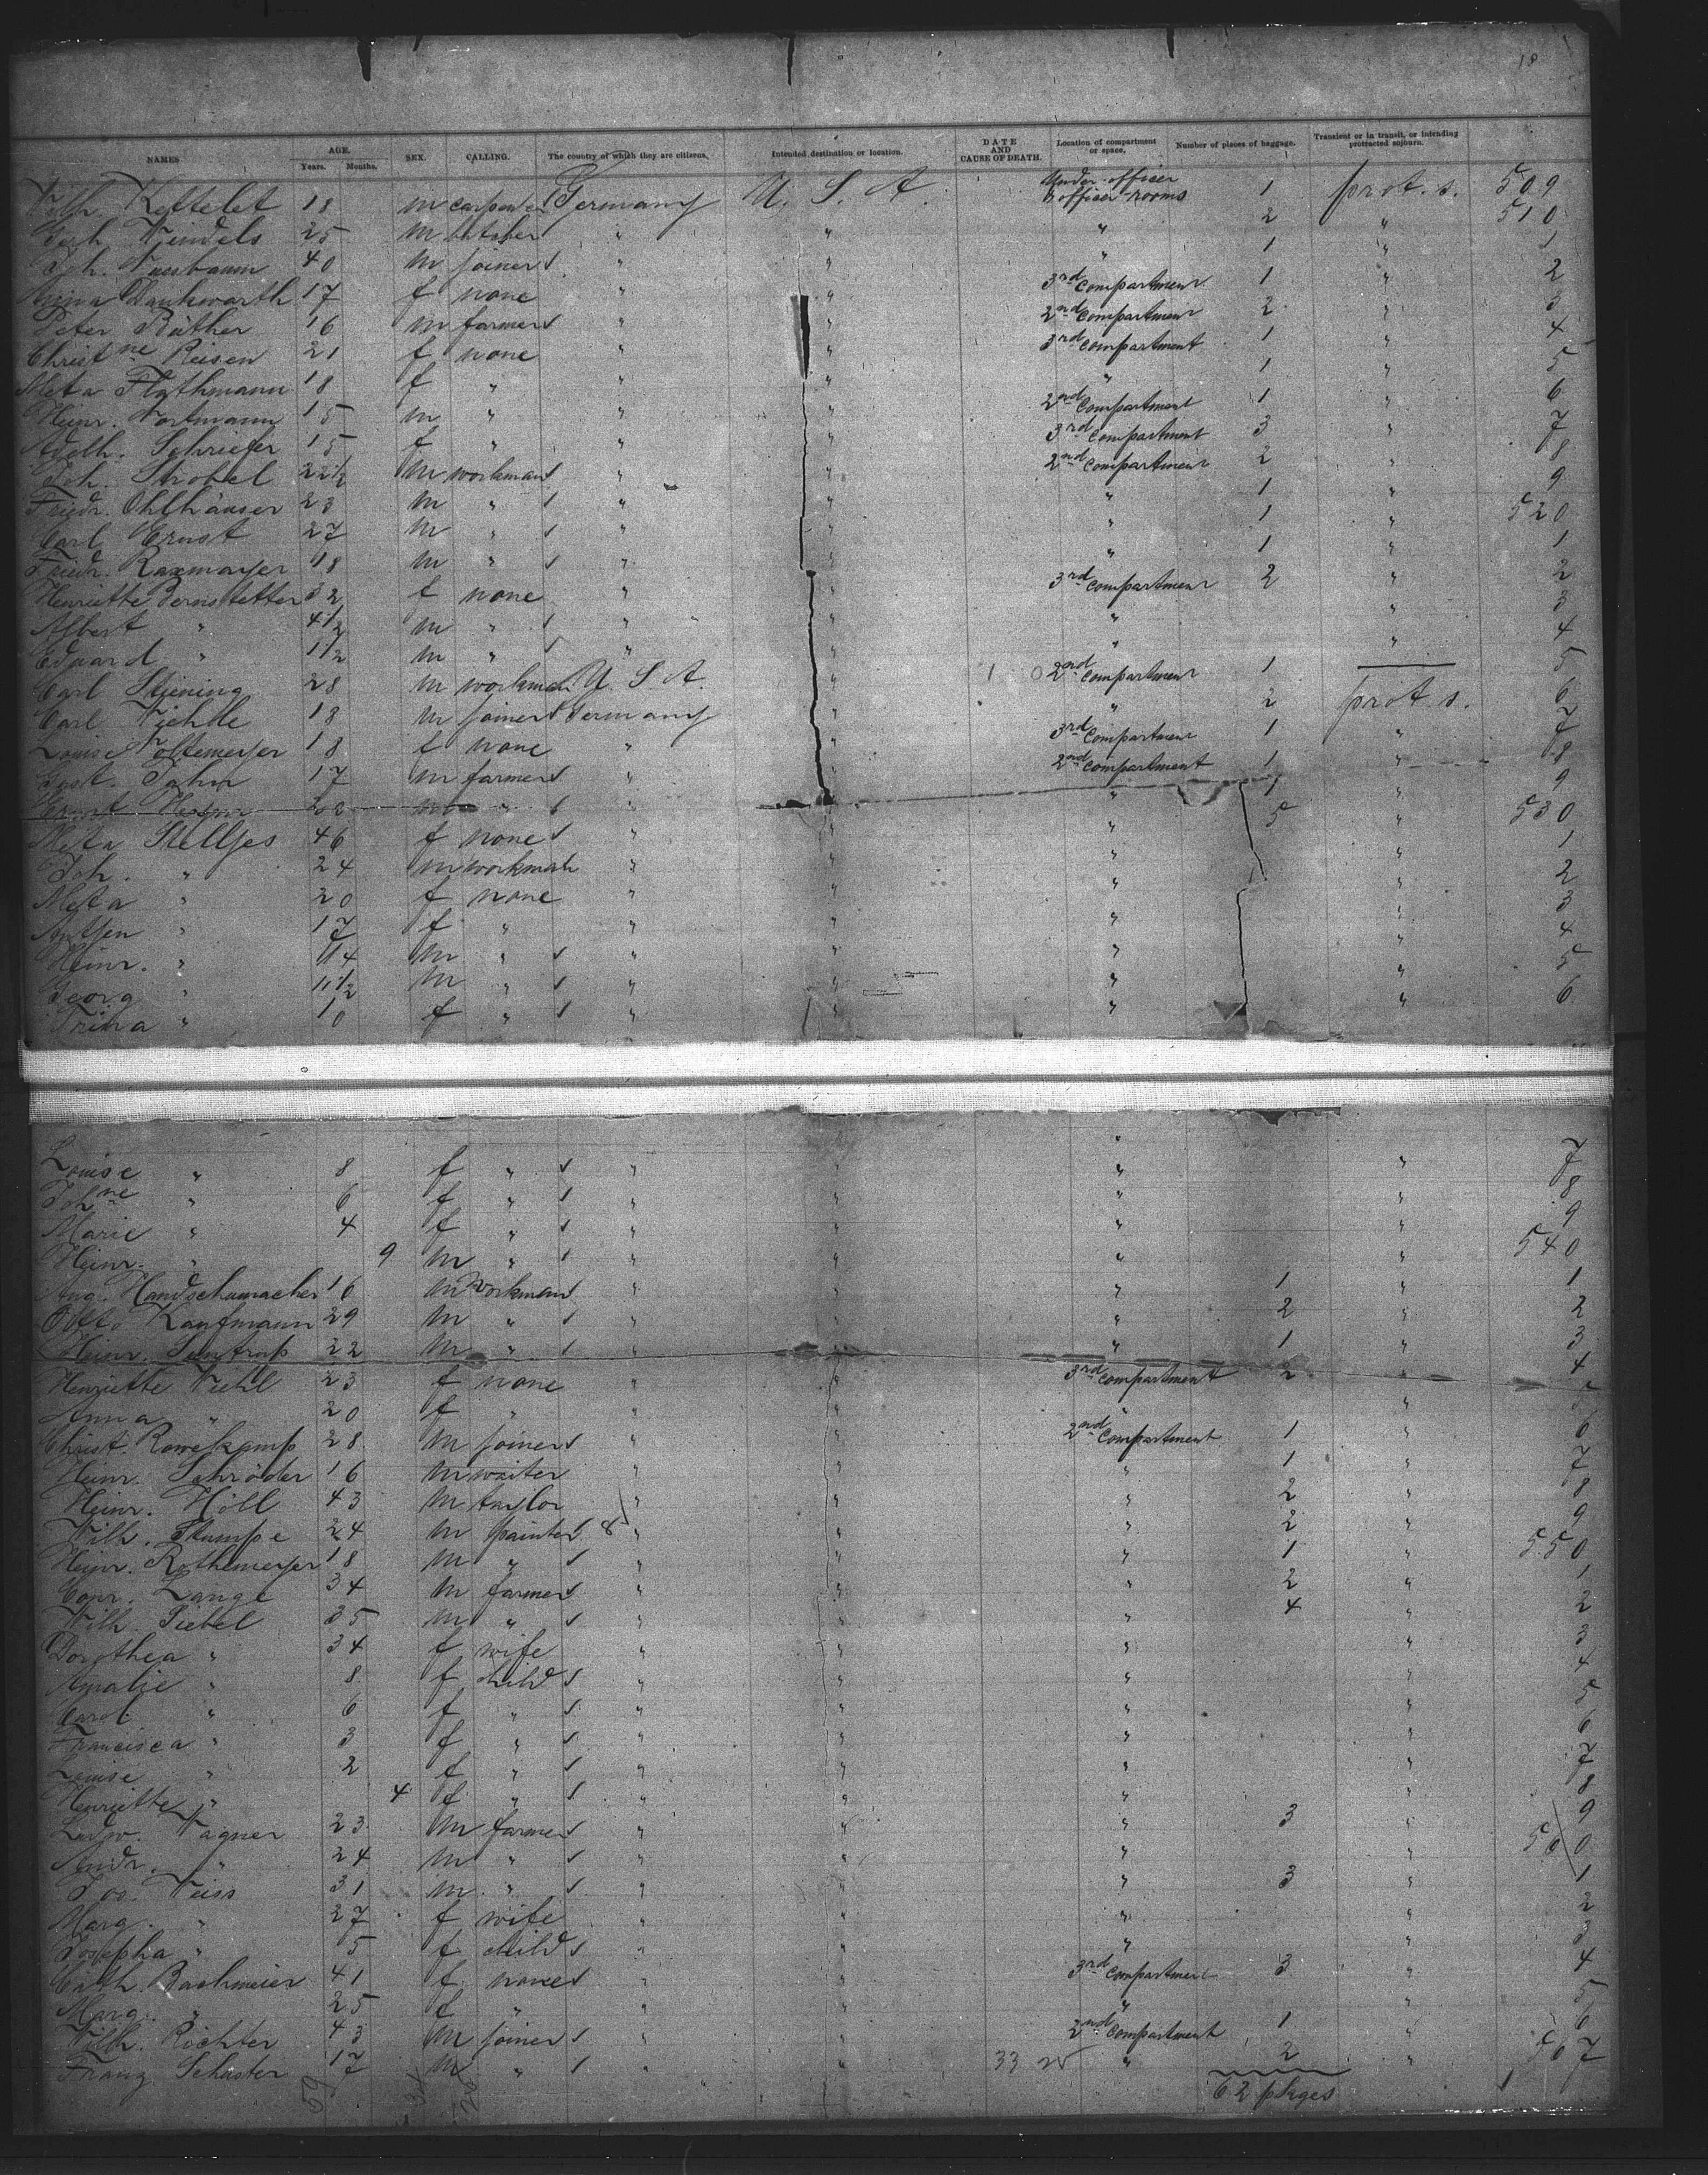 18
NAMES AGE. Years. Months. SEX. CALLING. The country of which they are citizens. Intended destination or location. DATE AND CAUSE OF DEATH. Location of compartment or space. Number of pieces of baggage. Transient or in transit, or intending protracted sojourn.
Wilh. 18 m carpenter Germany U. S. A. Under officer & officer rooms 1 prot. s. 509
Gerh. 25 m butcher " " " 2 " 510
Joh. Nussbaum 40 m joiner " " " 1 " 1
Anna Dankwarth 17 f none " " 3rd compartment 1 " 2
Peter Rüther 16 m farmer " " 2nd compartment 2 " 3
Christne Reisen 21 f none " " 3rd compartment 1 " 4
Meta Flathmann 18 f " " " " 1 " 5
Heinr. Wortmann 15 m " " " 2nd compartment 1 " 6
Adelh. Schriefer 15 f " " " 3rd compartment 3 " 7
Joh. Strobel 22 1/2 m workman " " 2nd compartment 2 " 8
Friedr. Ohlhäuser 23 m " " " " 1 " 9
Carl Ernst 27 m " " " " 1 " 520
Friedr. 18 m " " " " 1 " 1
Henriette Bernstetter 32 f none " " 3rd compartment 2 " 2
Albert " 4 1/2 m " " " " " 3
Eduard " 1 1/2 m " " " " " 4
Carl 28 m workman U. S. A. " 2nd compartment 1 5
Carl Viehle 18 m joiner Germany " " 2 prot. s. 6
Louise Woltemeyer 18 f none " " 3rd compartment 1 " 7
Gust. Jahn 17 m farmer " " 2nd compartment 1 " 8
Ernst 22 m " " " " 1 " 9
Meta Stelljes 46 f none " " " 5 " 530
Joh. " 24 m workman " " " " 1
Meta " 20 f none " " " " 2
Antjen " 17 f " " " " " 3
Heinr. " 14 m " " " " " 4
Georg " 11 1/2 m " " " " " 5
Trina " 10 f " " " " " 6
Louise " 8 f " " " " " 7
Johne " 6 f " " " " " 8
Marie " 4 f " " " " " 9
Heinr. " 9 m " " " " " 540
Aug. Handschumacher 16 m workman " " " 1 " 1
Otto Kaufmann 29 m " " " " 2 " 2
Heinr. 22 m " " " " 1 " 3
Henriette Viehl 23 f none " " 3rd compartment 2 " 4
Anna " 20 f " " " " " 5
Christ. Rowekamp 28 m joiner " " 2nd compartment 1 " 6
Heinr. Schröder 16 m waiter " " " 1 " 7
Heinr. Höll 43 m taylor " " " 2 " 8
Wilh. Stumpe 24 m painter 8 " " " 2 " 9
Heinr. Rothemeyer 18 m " " " " 1 " 550
Conr. Lange 34 m farmer " " " 2 " 1
Wilh. Siebel 35 m " " " " 4 " 2
Dorothea " 34 f wife " " " " 3
Amalie " 8 f child " " " " 4
Carol. " 6 f " " " " " 5
Francisca " 3 f " " " " " 6
Louise " 2 f " " " " " 7
Henriette " 4 f " " " " " 8
Ludw. Wagner 23 m farmer " " " 3 " 9
Andr. " 24 m " " " " " 560
Jos. Weiss 31 m " " " " 3 " 1
Marg. " 27 f wife " " " " 2
Josepha " 5 f child " " " " 3
Cath. Bachmeier 41 f none " " 3rd compartment 3 " 4
Marg. " 25 f " " " " " 5
Wilh. Richter 43 m joiner " " 2nd compartment 1 " 6
Franz Schuster 17 m " " " 33 " 2 " 567
59 62 pkges